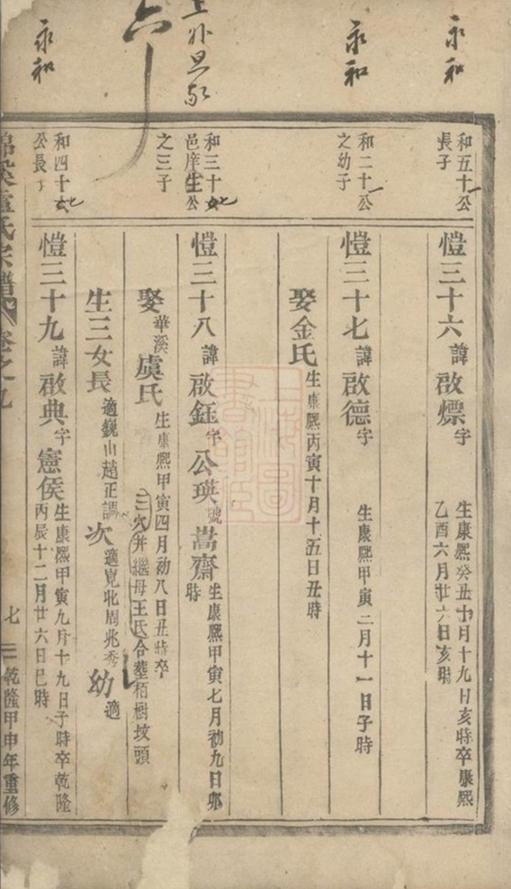 永和
永和
六
永和
和五十一公
長子
愷三十六諱啟熛字
生康熙癸丑十月十九日亥時卒康熙
乙酉六月廿六日亥時
和二十一公
之幼子
愷三十七諱啟德字
生康熙甲寅二月十一日子時
娶金氏生康熙丙寅十月十五日丑時
和三十七公
邑庠生
之三子
愷三十八諱啟鈺字公瑛號嵩齋生康熙甲寅七月初九日卯
時
娶華溪虞氏生康熙甲寅四月初八日丑時卒
三穴并繼母王氏合塟栢樹坟頭
生三女長適巍山趙正謨次適崑北周兆秀幼適
和四十七
公長子
愷三十九諱啟典字憲侯生康熙甲寅九月十九日子時卒乾隆
丙辰十二月廿六日巳時
氏宗譜 卷之九
七
乾隆甲申年重修